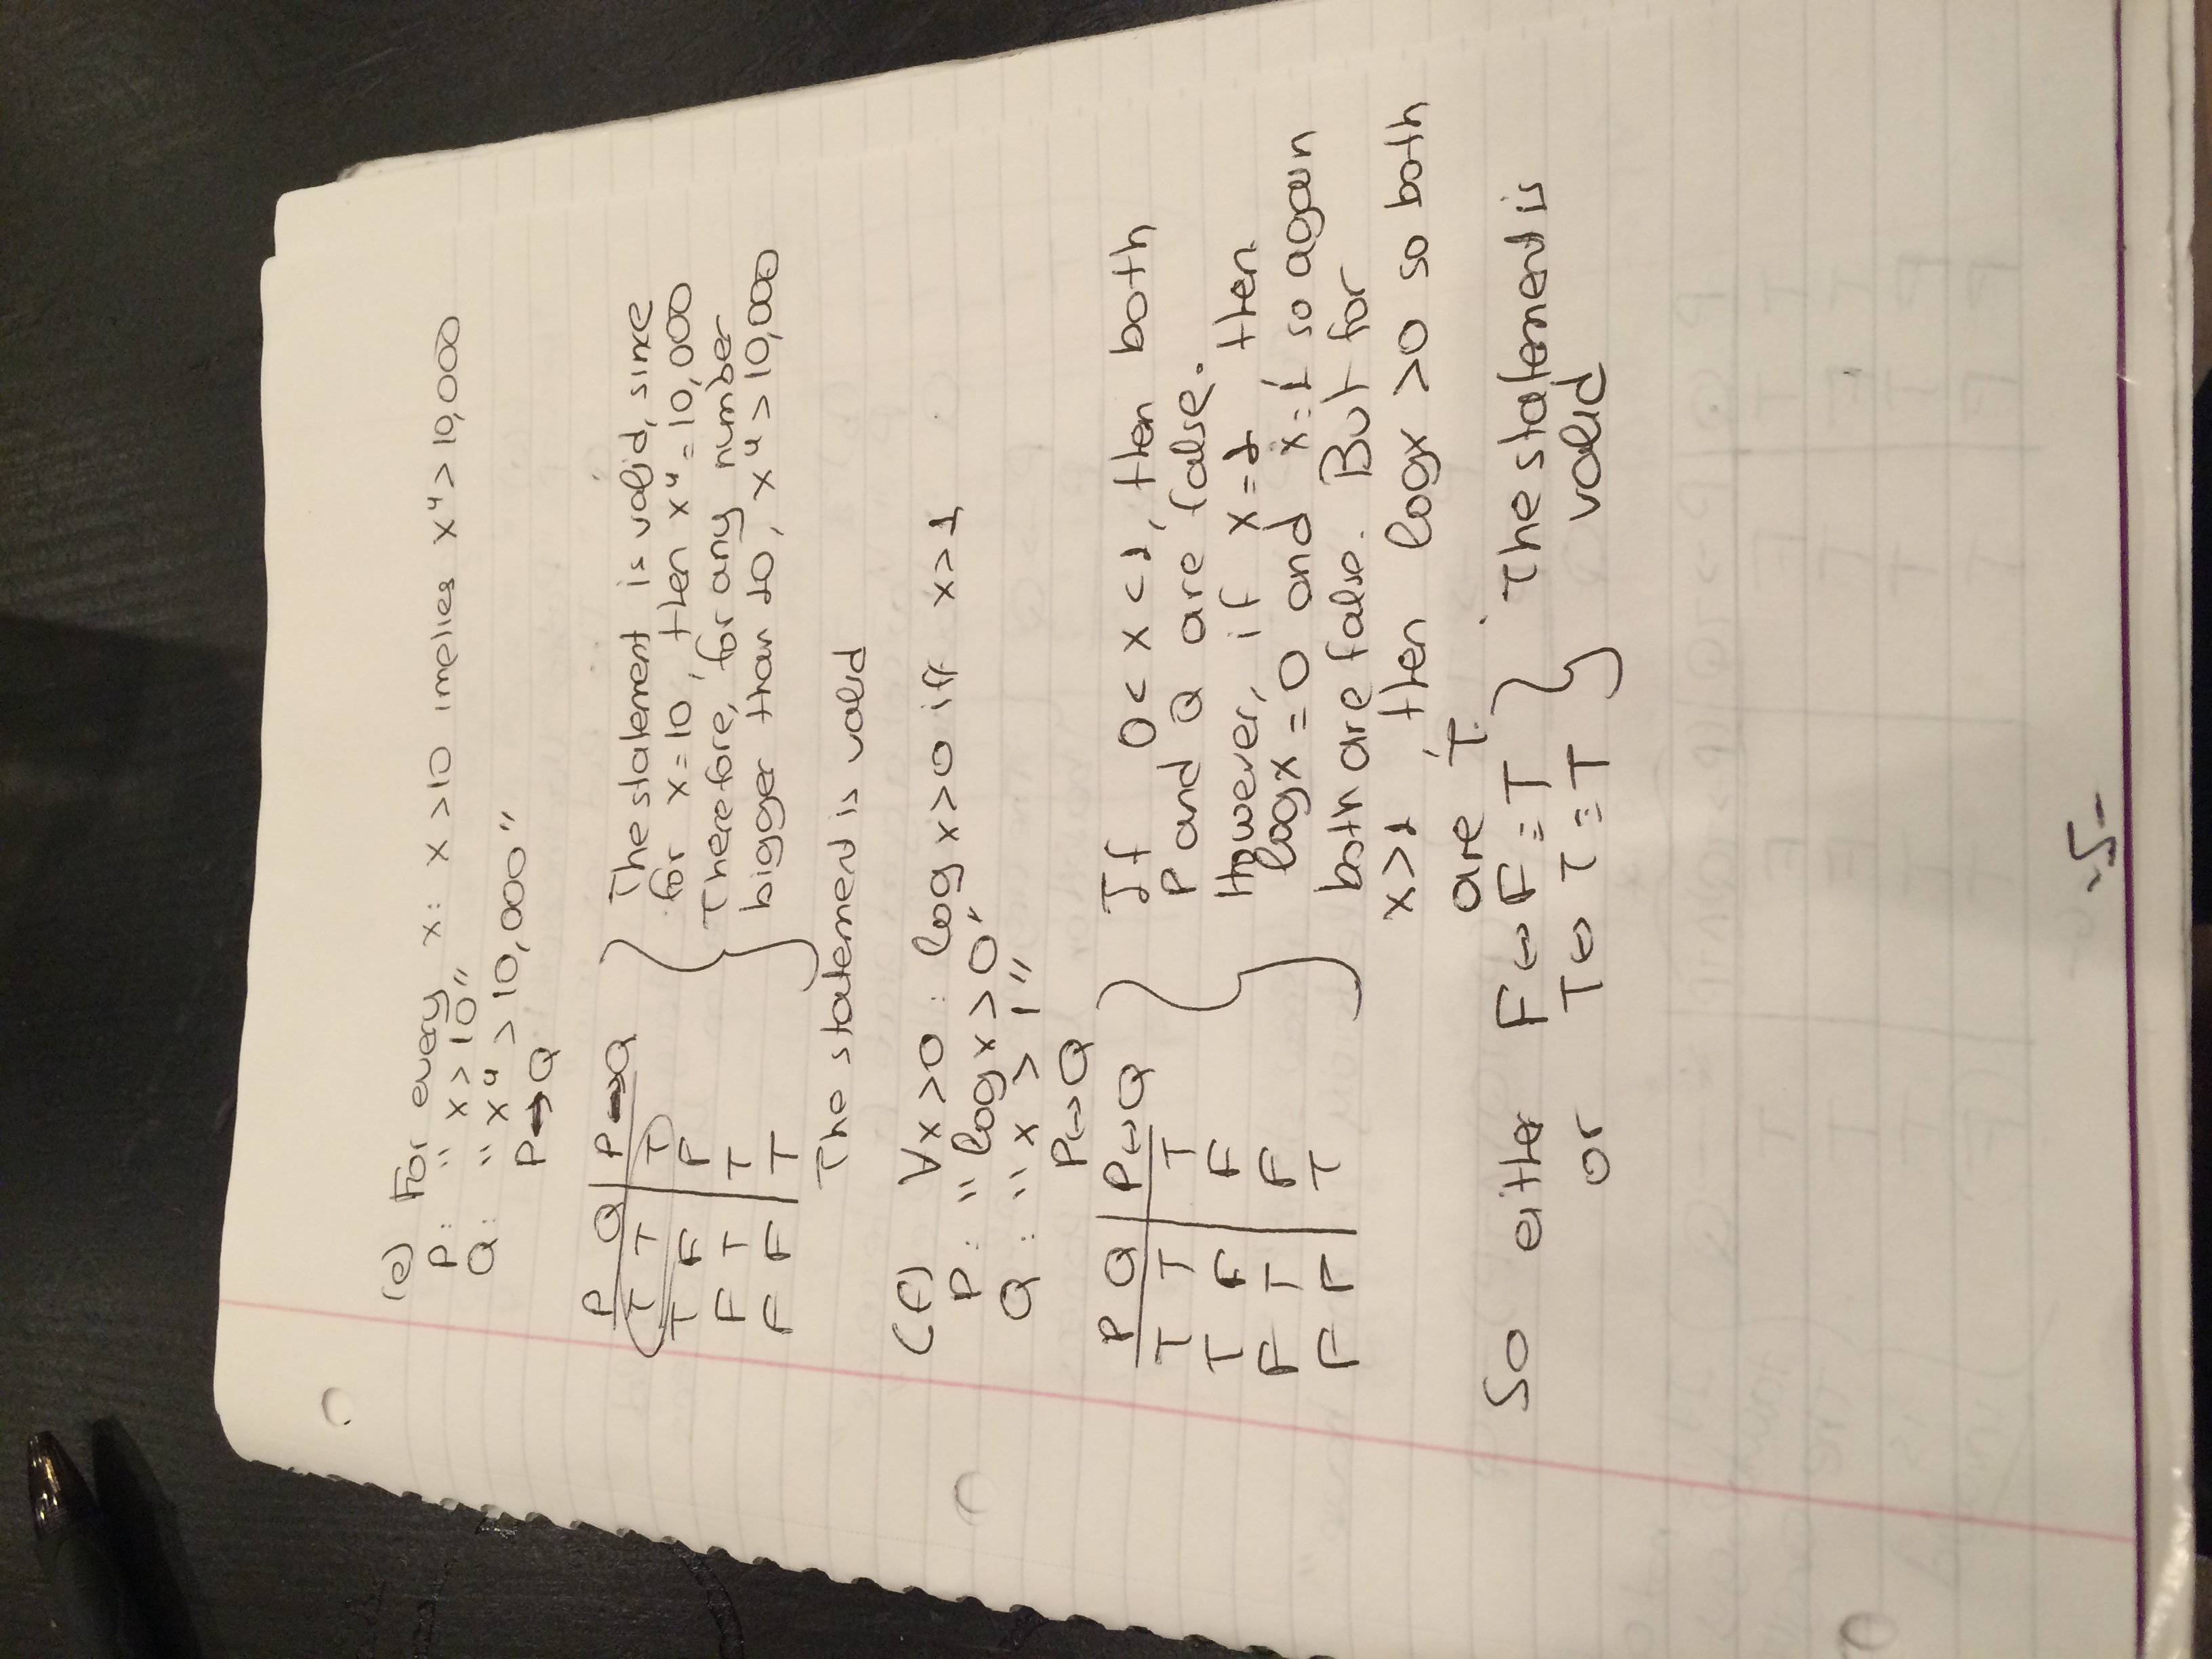 (e) For every x: x >10 implies x⁴ > 10,000
P: " x > 10"
Q: " x⁴ > 10,000"
P→Q
P Q | P→Q
T T | T
T F | F
F T | T
F F | T
The statement is valid, since
for x=10, then x⁴=10,000
Therefore, for any number
bigger than 10, x⁴ > 10,000
The statement is valid
(f) ∀x>0 : log x>0 iff x>1
P: "log x > 0"
Q: "x > 1"
P↔Q
P Q | P↔Q
T T | T
T F | F
F T | F
F F | T
If 0<x<1, then both
P and Q are false.
However, if x=1, then
log x = 0 and x=1 so again
both are false. But for
x>1, then log x >0 so both
are T.
So either F↔F≡T } The statement is
or T↔T≡T valid
-5-